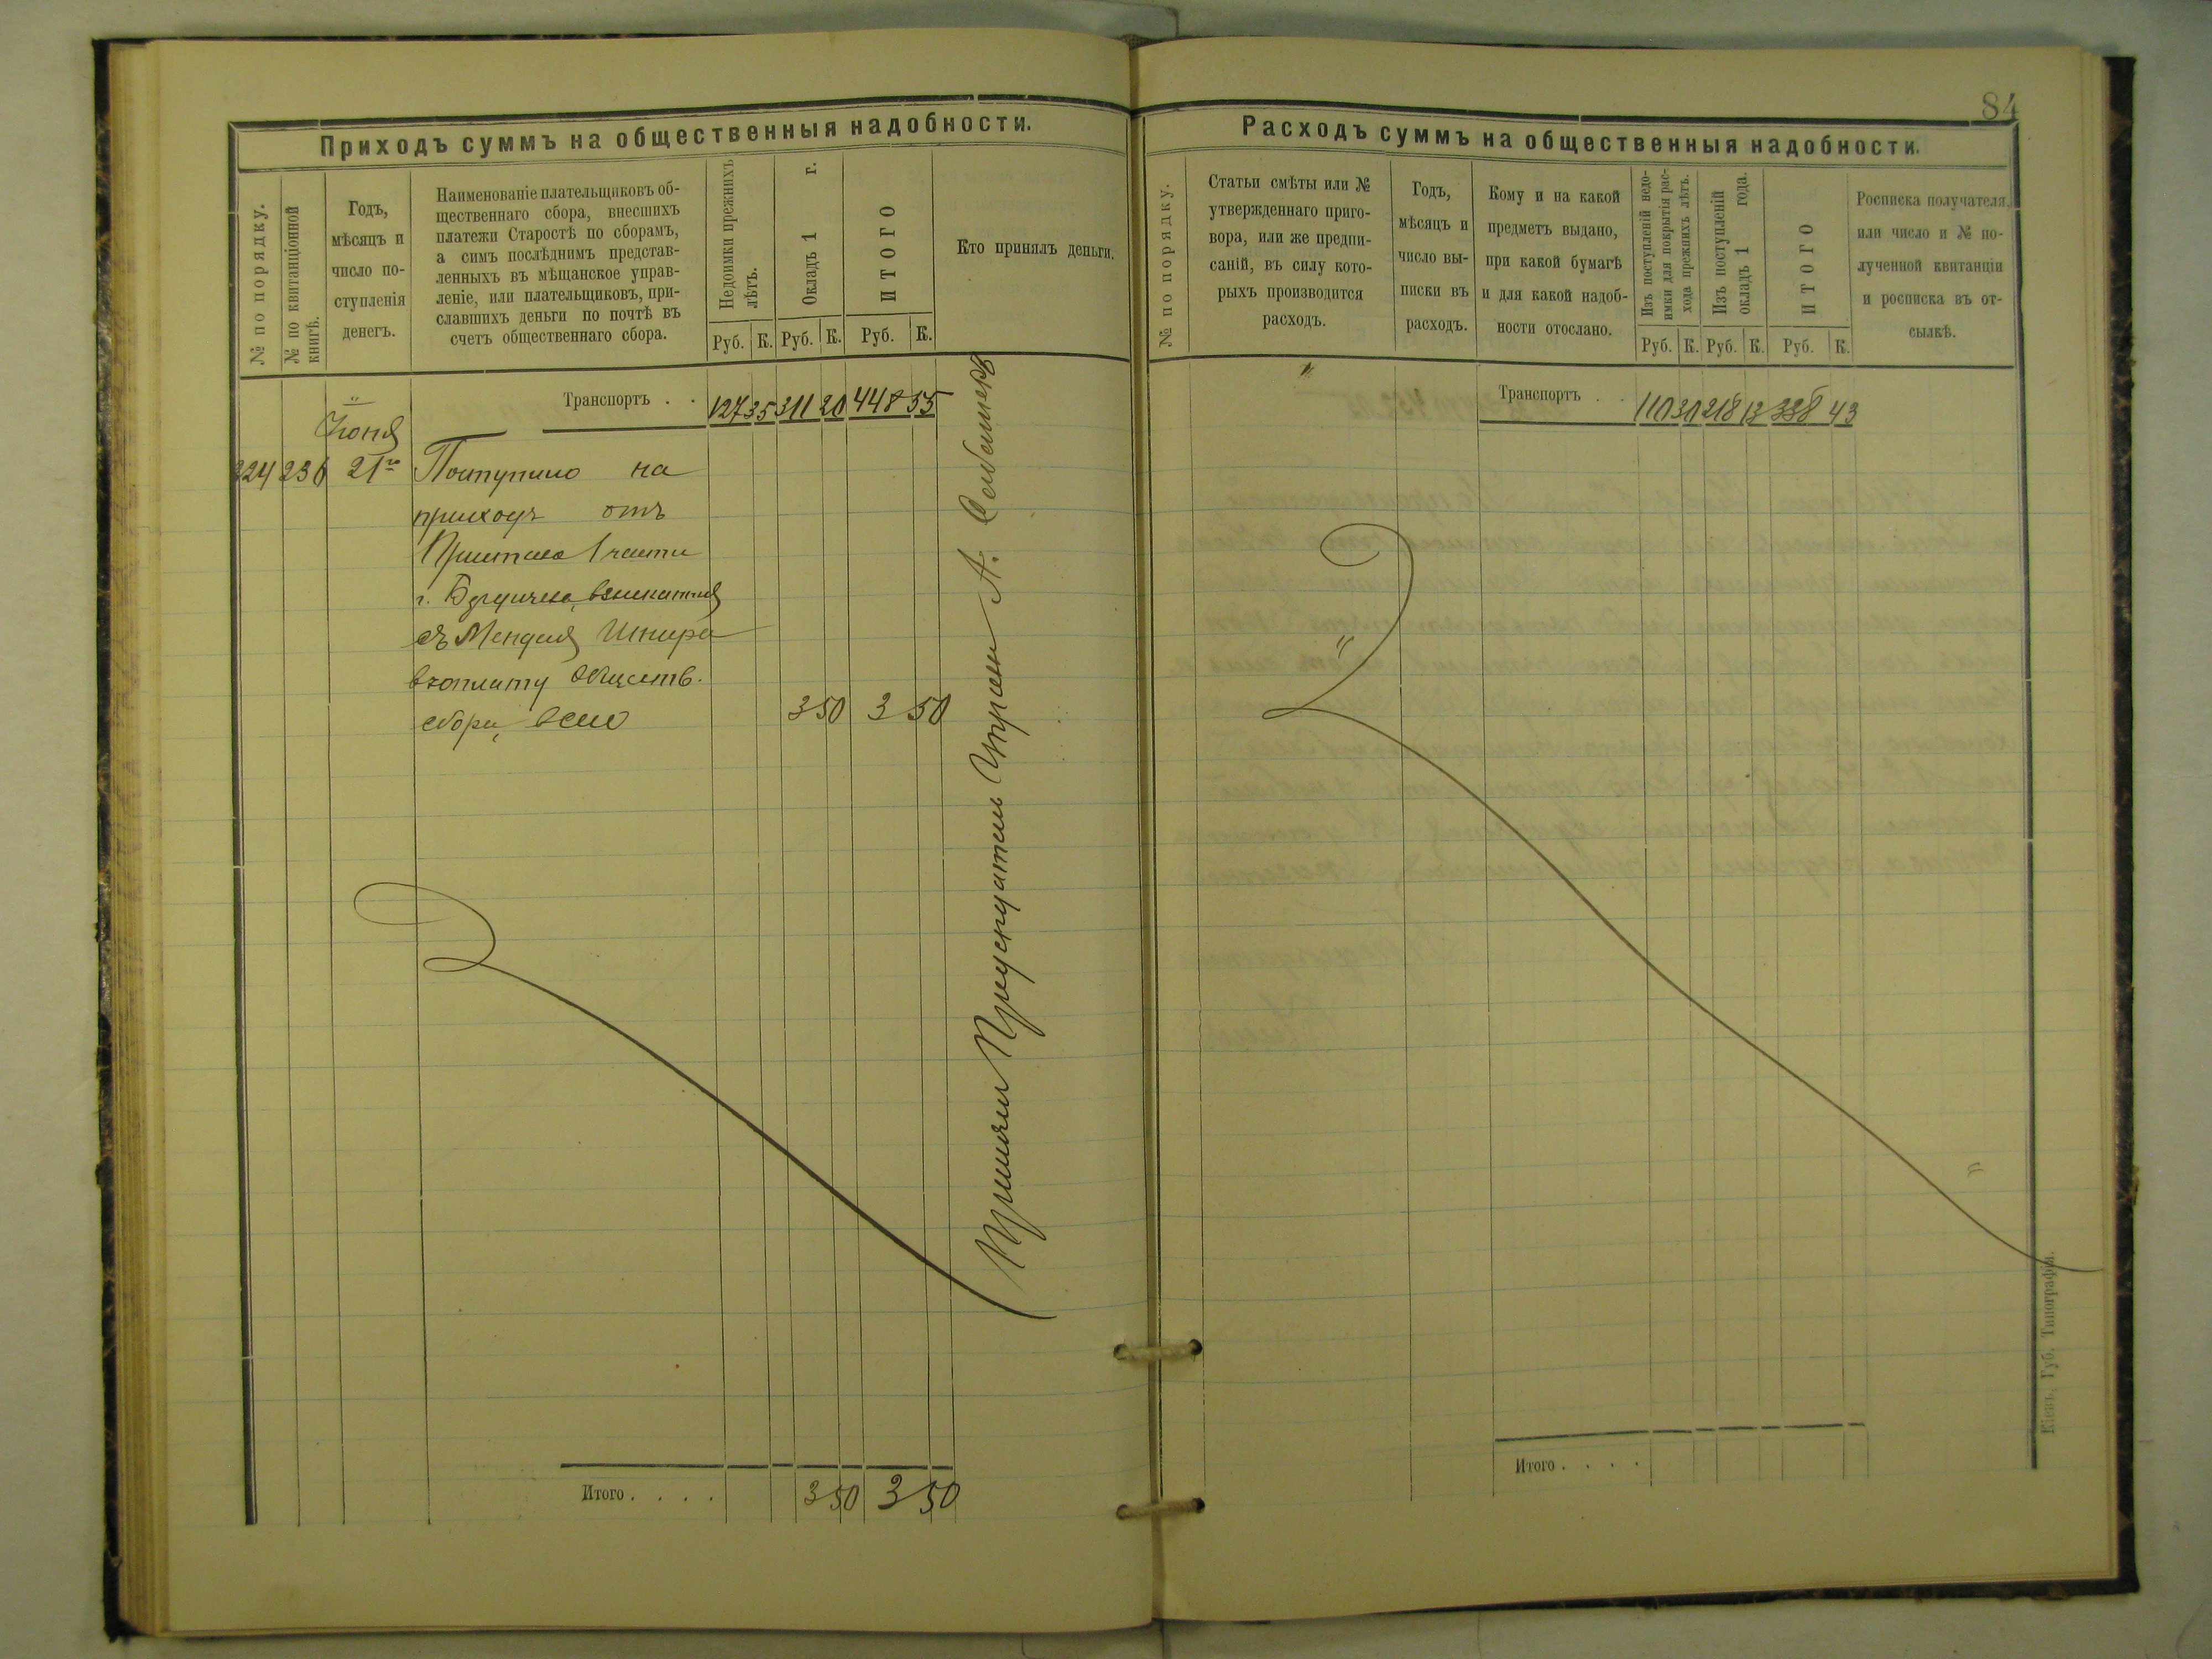 84
Приходъ суммъ на общественныя надобности.
№ по порядку.
№ по квитанціонной
книгѣ.
Годъ,
мѣсяцъ и
число по-
ступленія
денегъ.
Наименованіе плательщиковъ об-
щественнаго сбора, внесшихъ
платежи Старостѣ по сборамъ,
а симъ послѣднимъ представ-
ленныхъ въ мѣщанское управ-
леніе, или плательщиковъ, при-
славшихъ деньги по почтѣ въ
счетъ общественнаго сбора.
Недоимки прежнихъ
лѣтъ.
Окладъ 1 г.
ИТОГО
Кто принялъ деньги.
Руб. К. Руб. К. Руб. К.
Транспортъ . . 127 35 311 20 448 55
Іюня
224 236 21го Поступило на
приходъ отъ
Пристава 1 части
г. Бердичева, взысканныя
съ Менделя Шпира
въ уплату обществ.
сбора, всего 3 50 3 50
Принялъ Предсѣдатель Управы А.
Итого . . . . 3 50 3 50
Расходъ суммъ на общественныя надобности.
№ по порядку.
Статьи смѣты или №
утвержденнаго приго-
вора, или же предпи-
саній, въ силу кото-
рыхъ производится
расходъ.
Годъ,
мѣсяцъ и
число вы-
писки въ
расходъ.
Кому и на какой
предметъ выдано,
при какой бумагѣ
и для какой надоб-
ности отослано.
Изъ поступленій недо-
имки для покрытія рас-
хода прежнихъ лѣтъ.
Изъ поступленій
окладъ 1 года.
ИТОГО
Росписка получателя,
или число и № по-
лученной квитанціи
и росписка въ от-
сылкѣ.
Руб. К. Руб. К. Руб. К.
Транспортъ . . 110 30 218 13 388 43
Итого . . . .
Кіевъ, Губ. Типографія.